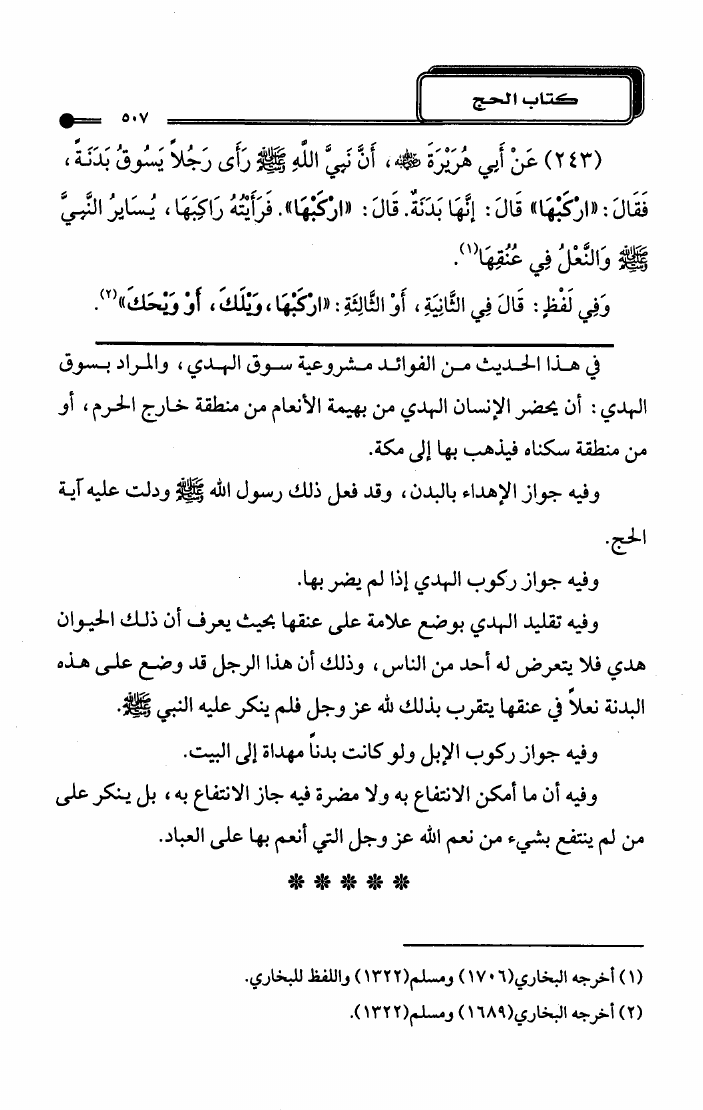 كتاب الحج
٥٠٧
(٢٤٣) عَنْ أَبِي هُرَيْرَةَ ﷺ، أَنَّ نَبِيَّ اللَّهِ ﷺ رَأَى رَجُلاً يَسُوقُ بَدَنَةً،
فَقَالَ: «ارْكَبْهَا» قَالَ: إِنَّهَا بَدَنَةٌ. قَالَ: «ارْكَبْهَا». فَرَأَيْتُهُ رَاكِبَهَا، يُسَايِرُ النَّبِيَّ
ﷺ وَالنَّعْلُ فِي عُنُقِهَا(١).
وَفِي لَفْظٍ: قَالَ فِي الثَّانِيَةِ، أَوْ الثَّالِثَةِ: «ارْكَبْهَا، وَيْلَكَ، أَوْ وَيْحَكَ»(٢).
في هذا الحديث من الفوائد مشروعية سوق الهدي، والمراد بسوق
الهدي: أن يحضر الإنسان الهدي من بهيمة الأنعام من منطقة خارج الحرم، أو
من منطقة سكناه فيذهب بها إلى مكة.
وفيه جواز الإهداء بالبدن، وقد فعل ذلك رسول الله ﷺ ودلت عليه آية
الحج.
وفيه جواز ركوب الهدي إذا لم يضر بها.
وفيه تقليد الهدي بوضع علامة على عنقها بحيث يعرف أن ذلك الحيوان
هدي فلا يتعرض له أحد من الناس، وذلك أن هذا الرجل قد وضع على هذه
البدنة نعلاً في عنقها يتقرب بذلك لله عز وجل فلم ينكر عليه النبي ﷺ.
وفيه جواز ركوب الإبل ولو كانت بدناً مهداة إلى البيت.
وفيه أن ما أمكن الانتفاع به ولا مضرة فيه جاز الانتفاع به، بل ينكر على
من لم ينتفع بشيء من نعم الله عز وجل التي أنعم بها على العباد.
* * * * *
(١) أخرجه البخاري(١٧٠٦) ومسلم(١٣٢٢) واللفظ للبخاري.
(٢) أخرجه البخاري(١٦٨٩) ومسلم(١٣٢٢).